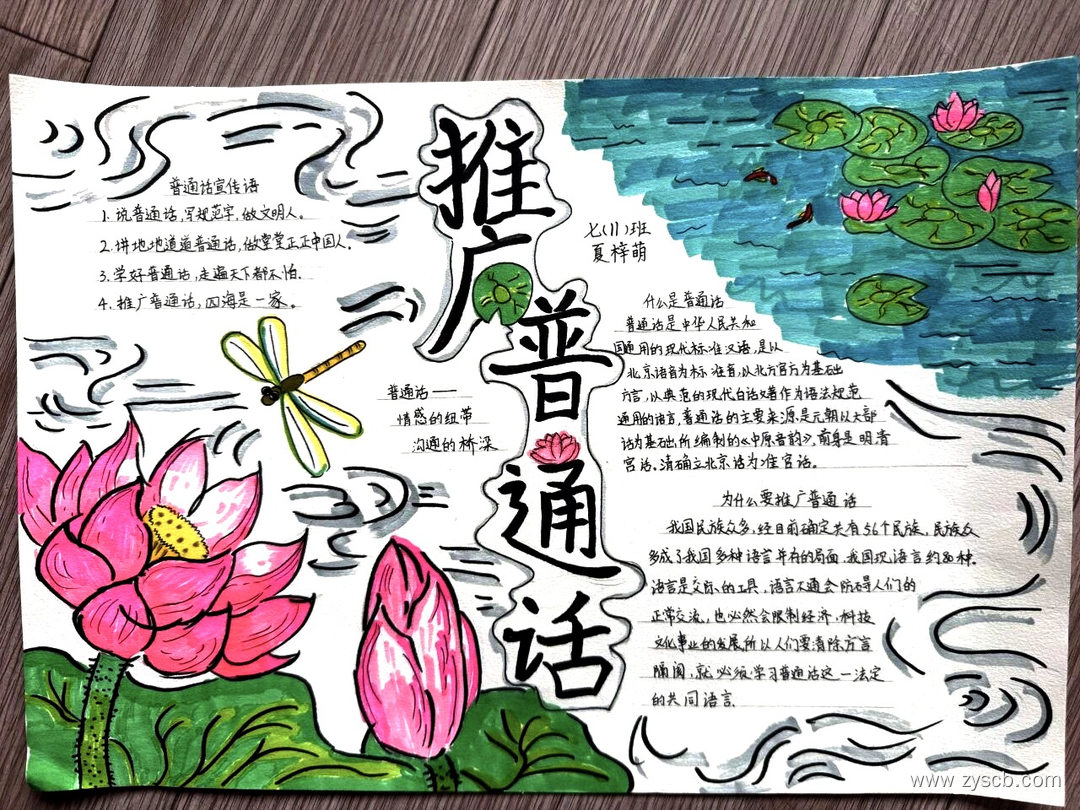 推广普通话
普通话宣传语
1. 说普通话,写规范字,做文明人。
2. 讲地地道道普通话,做堂堂正正中国人。
3. 学好普通话,走遍天下都不怕.
4. 推广普通话,四海是一家。
普通话——
情感的纽带
沟通的桥梁
七(11)班
夏梓萌
什么是普通话
普通话是中华人民共和
国通用的现代标准汉语,是以
北京语音为标准音,以北方官方为基础
方言,以典范的现代白话文著作为语法规范
通用的语言,普通话的主要来源是元朝以大都
话为基础所编制的《中原音韵》,前身是明清
官话,清确立北京话为准官话。
为什么要推广普通话
我国民族众多,经目前确定共有56个民族,民族众
多成了我国多种语言并存的局面,我国现语言约80种。
语言是交际的工具,语言不通会防碍人们的
正常交流,也必然会限制经济,科技
文化事业的发展所以人们要清除方言
隔阂,就必须学习普通话这一法定
的共同语言.
www.zyscb.com